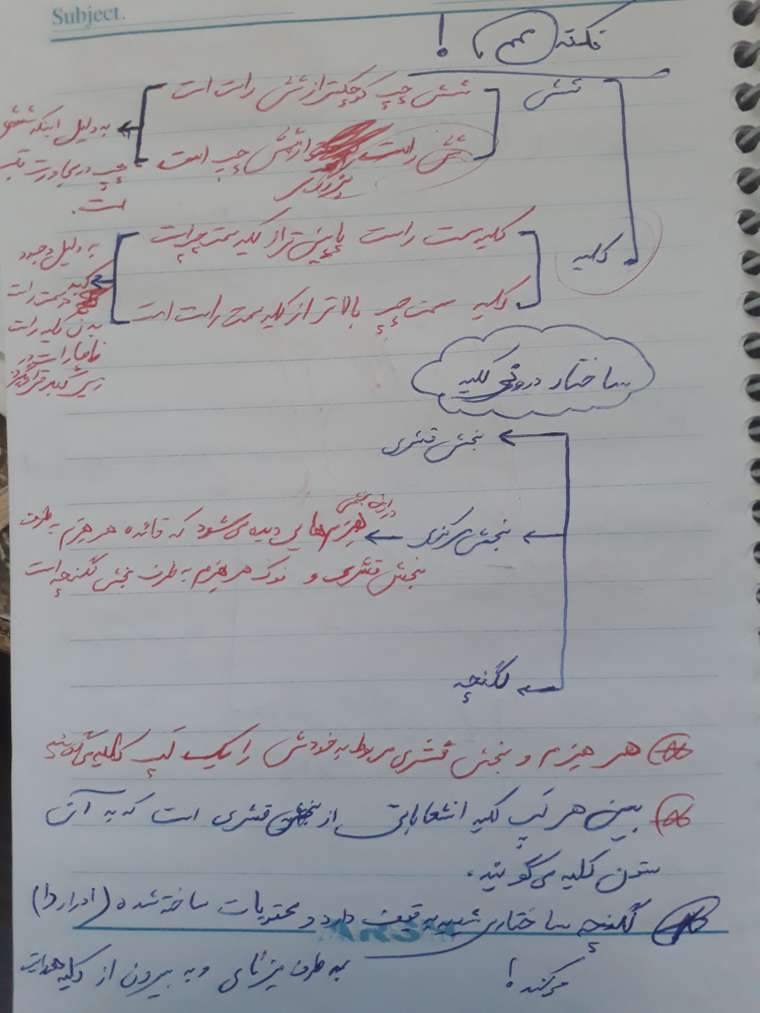 Subject.
نکته مهم !
شش
شش چپ کوچکتر از شش راست است
شش راست بزرگتر از شش چپ است
به دلیل اینکه شش
چپ در مجاورت قلب
است.
کلیه
کلیه سمت راست پایین تر از کلیه سمت چپ است
کلیه سمت چپ بالاتر از کلیه سمت راست است
به دلیل وجود
کبد سمت راست
بدن کلیه راست
زیر کبد قرار گرفته
ساختار درونی کلیه
بخش قشری
بخش مرکزی
در این بخش هرم هایی دیده می شود که قاعده هر هرم به طرف
بخش قشری و نوک هر هرم به طرف بخش لگنچه است
لگنچه
هر هرم و بخش قشری مربوط به خودش را یک لپ کلیه می گویند
بین هر لپ کلیه انشعاباتی از بخش قشری است که به آن
ستون کلیه می گویند.
لگنچه ساختاری شبیه به قیف دارد و محتویات ساخته شده (ادرار را)
به طرف میزنای و به بیرون از کلیه هدایت
می کند !